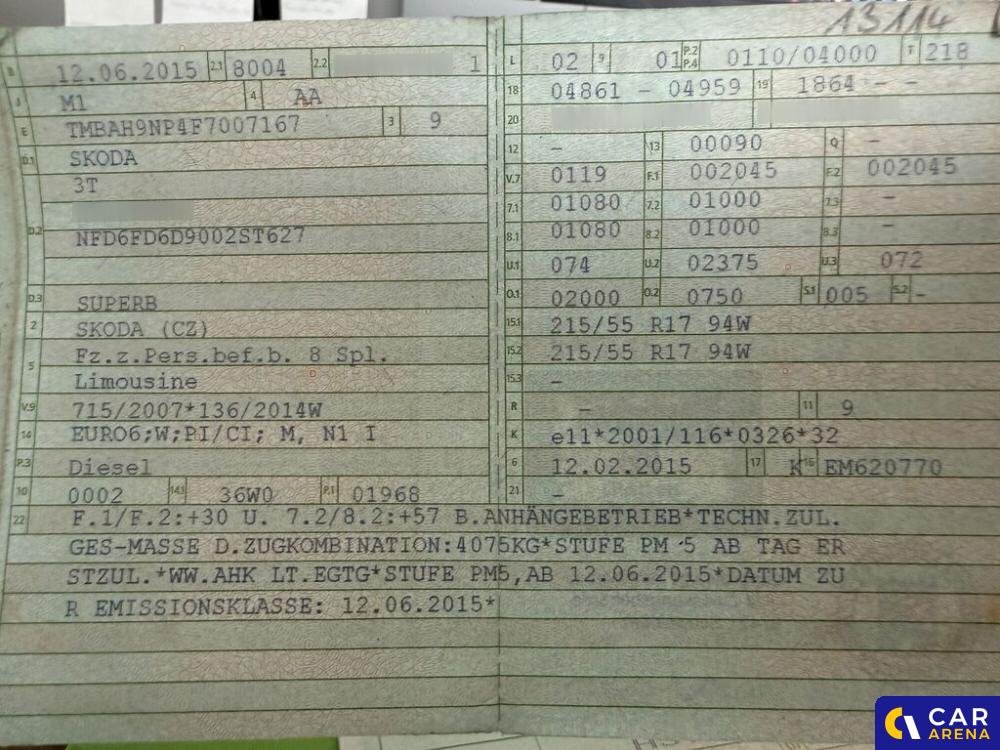 13114
B 12.06.2015 2.1 8004 2.2 1
J M1 4 AA
E TMBAH9NP4F7007167 3 9
D.1 SKODA
3T
D.2
NFD6FD6D9002ST627
D.3 SUPERB
2 SKODA (CZ)
5 Fz.z.Pers.bef.b. 8 Spl.
Limousine
V.9 715/2007*136/2014W
14 EURO6;W;PI/CI; M, N1 I
P.3 Diesel
10 0002 14.1 36W0 P.1 01968
L 02 9 01 P.2 P.4 0110/04000 T 218
18 04861 - 04959 19 1864 - -
20
12 - 13 00090 Q -
V.7 0119 F.1 002045 F.2 002045
7.1 01080 7.2 01000 7.3 -
8.1 01080 8.2 01000 8.3 -
U.1 074 U.2 02375 U.3 072
O.1 02000 O.2 0750 S.1 005 S.2 -
15.1 215/55 R17 94W
15.2 215/55 R17 94W
15.3 -
R - 11 9
K e11*2001/116*0326*32
6 12.02.2015 17 K 16 EM620770
21 -
22 F.1/F.2:+30 U. 7.2/8.2:+57 B.ANHÄNGEBETRIEB*TECHN.ZUL.
GES-MASSE D.ZUGKOMBINATION:4075KG*STUFE PM 5 AB TAG ER
STZUL.*WW.AHK LT.EGTG*STUFE PM5,AB 12.06.2015*DATUM ZU
R EMISSIONSKLASSE: 12.06.2015*
CAR
ARENA